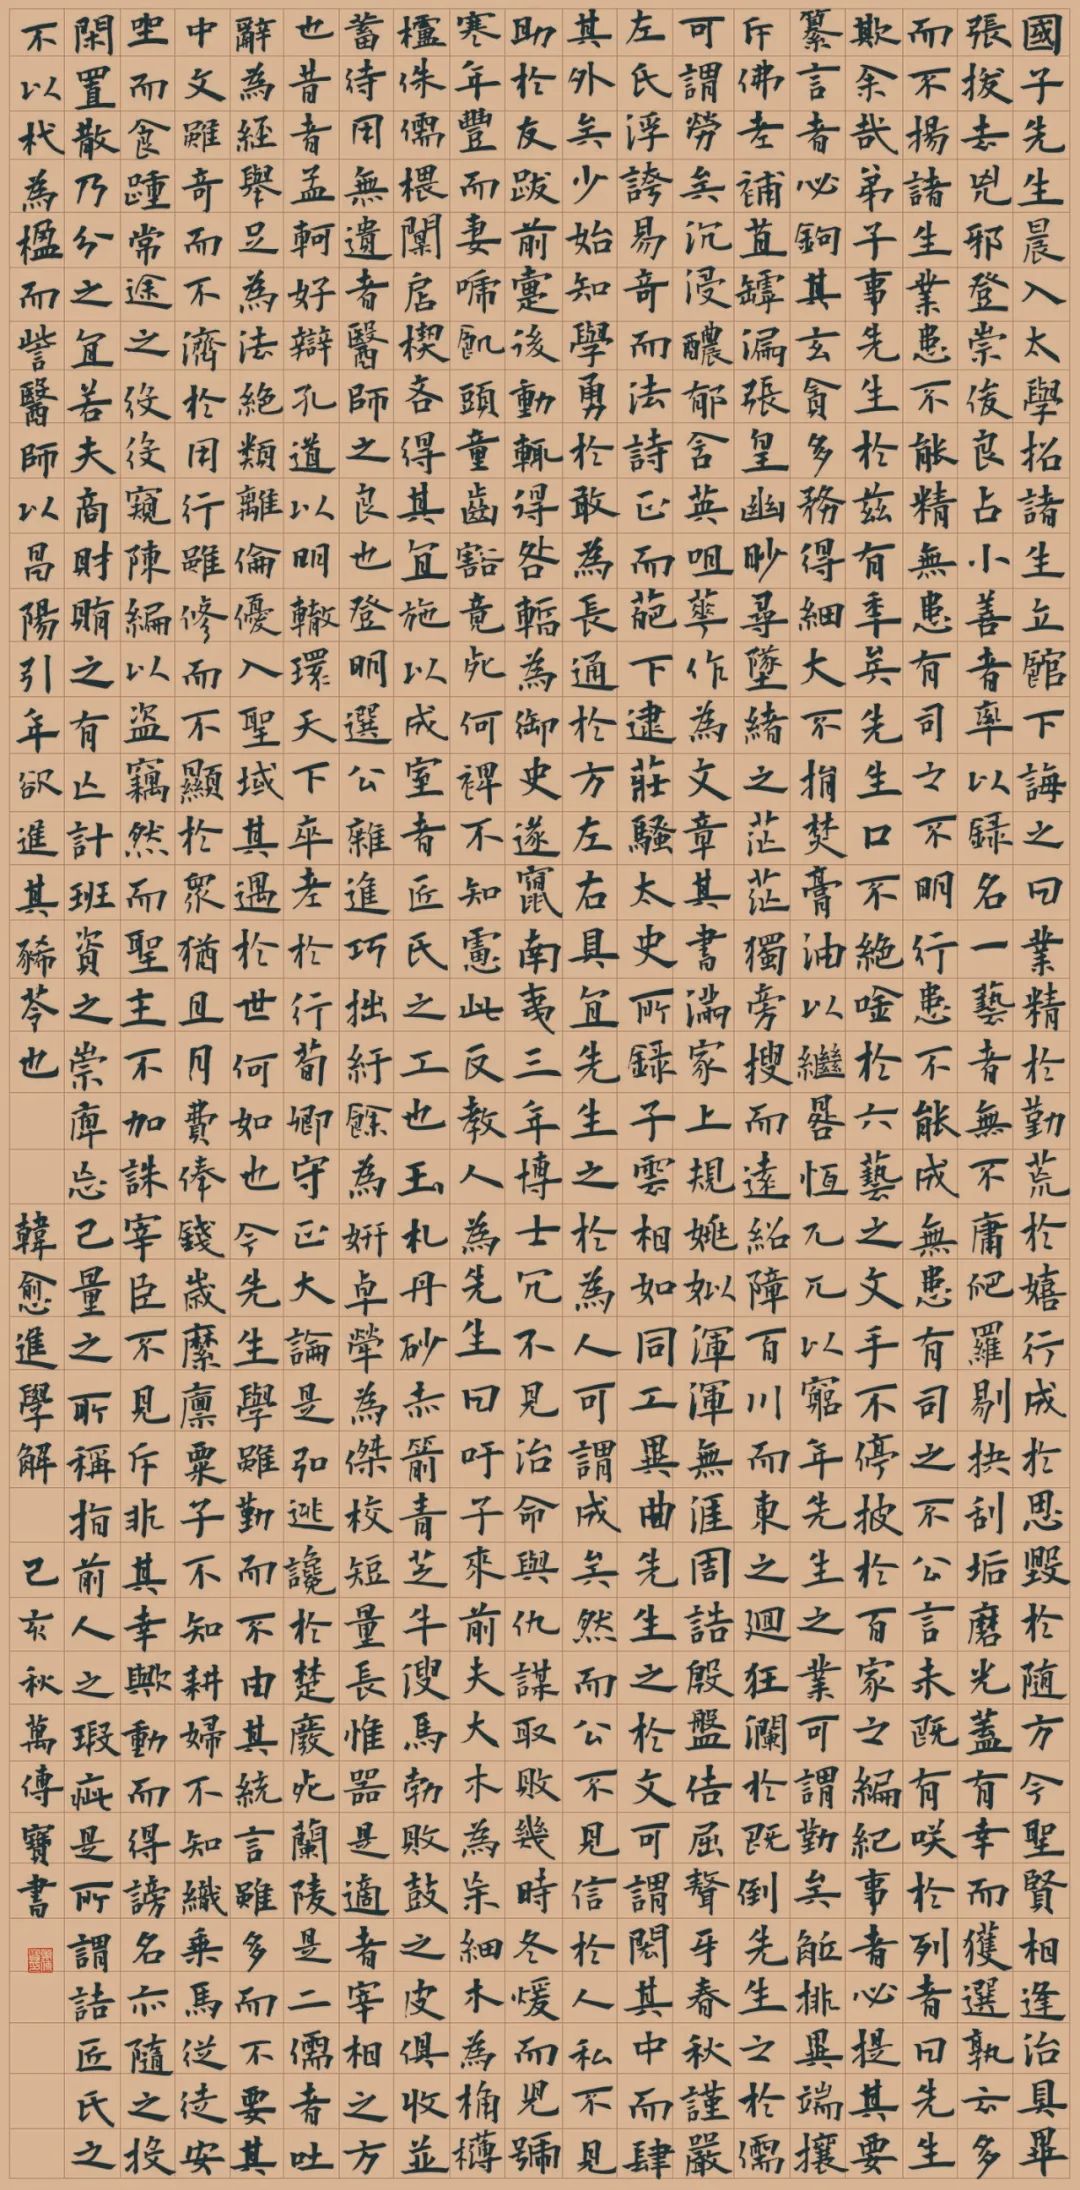 國子先生晨入太學招諸生立館下誨之曰業精於勤荒於嬉行成於思毀於隨方今聖賢相逢治具畢
張拔去兇邪登崇俊良占小善者率以錄名一藝者無不庸爬羅剔抉刮垢磨光蓋有幸而獲選孰云多
而不揚諸生業患不能精無患有司之不明行患不能成無患有司之不公言未既有咲於列者曰先生
欺余哉弟子事先生於茲有季矣先生口不絕唫於六藝之文手不停披於百家之編紀事者必提其要
纂言者必鉤其玄貪多務得細大不捐焚膏油以繼晷恆兀兀以窮年先生之業可謂勤矣觝排異端攘
斥佛老補苴罅漏張皇幽眇尋墜緒之茫茫獨旁搜而遠紹障百川而東之迴狂瀾於既倒先生之於儒
可謂勞矣沉浸醲郁含英咀華作為文章其書滿家上規姚姒渾渾無涯周誥殷盤佶屈聱牙春秋謹嚴
左氏浮誇易奇而法詩正而葩下逮莊騷太史所錄子雲相如同工異曲先生之於文可謂閎其中而肆
其外矣少始知學勇於敢為長通於方左右具宜先生之於為人可謂成矣然而公不見信於人私不見
助於友跋前疐後動輒得咎暫為御史遂竄南夷三年博士冗不見治命與仇謀取敗幾時冬煖而兒號
寒年豐而妻啼飢頭童齒豁竟死何裨不知慮此反教人為先生曰吁子來前夫大木為杗細木為桷欂
櫨侏儒椳闑扂楔各得其宜施以成室者匠氏之工也玉札丹砂赤箭青芝牛溲馬勃敗鼓之皮俱收並
蓄待用無遺者醫師之良也登明選公雜進巧拙紆餘為妍卓犖為傑校短量長惟器是適者宰相之方
也昔者孟軻好辯孔道以明轍環天下卒老於行荀卿守正大論是弘逃讒於楚廢死蘭陵是二儒者吐
辭為經舉足為法絕類離倫優入聖域其遇於世何如也今先生學雖勤而不由其統言雖多而不要其
中文雖奇而不濟於用行雖修而不顯於眾猶且月費俸錢歲縻廩粟子不知耕婦不知織乘馬從徒安
坐而食踵常途之役役窺陳編以盜竊然而聖主不加誅宰臣不見斥非其幸歟動而得謗名亦隨之投
閑置散乃分之宜若夫商財賄之有亡計班資之崇庳忘己量之所稱指前人之瑕疵是所謂詰匠氏之
不以杙為楹而訾醫師以昌陽引年欲進其豨苓也 韓愈進學解 己亥秋萬傅寶書